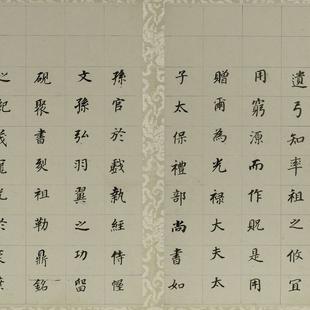 遺弓知率祖之攸宜
用窮源而作貺是用
贈爾為光祿大夫太
子太保禮部尚書如
孫官於戲執經侍幄
文孫弘羽翼之功留
硯聚書烈祖勒鼎銘
之紀